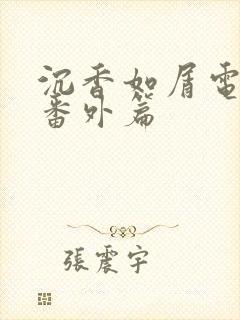 沉香如屑電
番外篇
張震宇